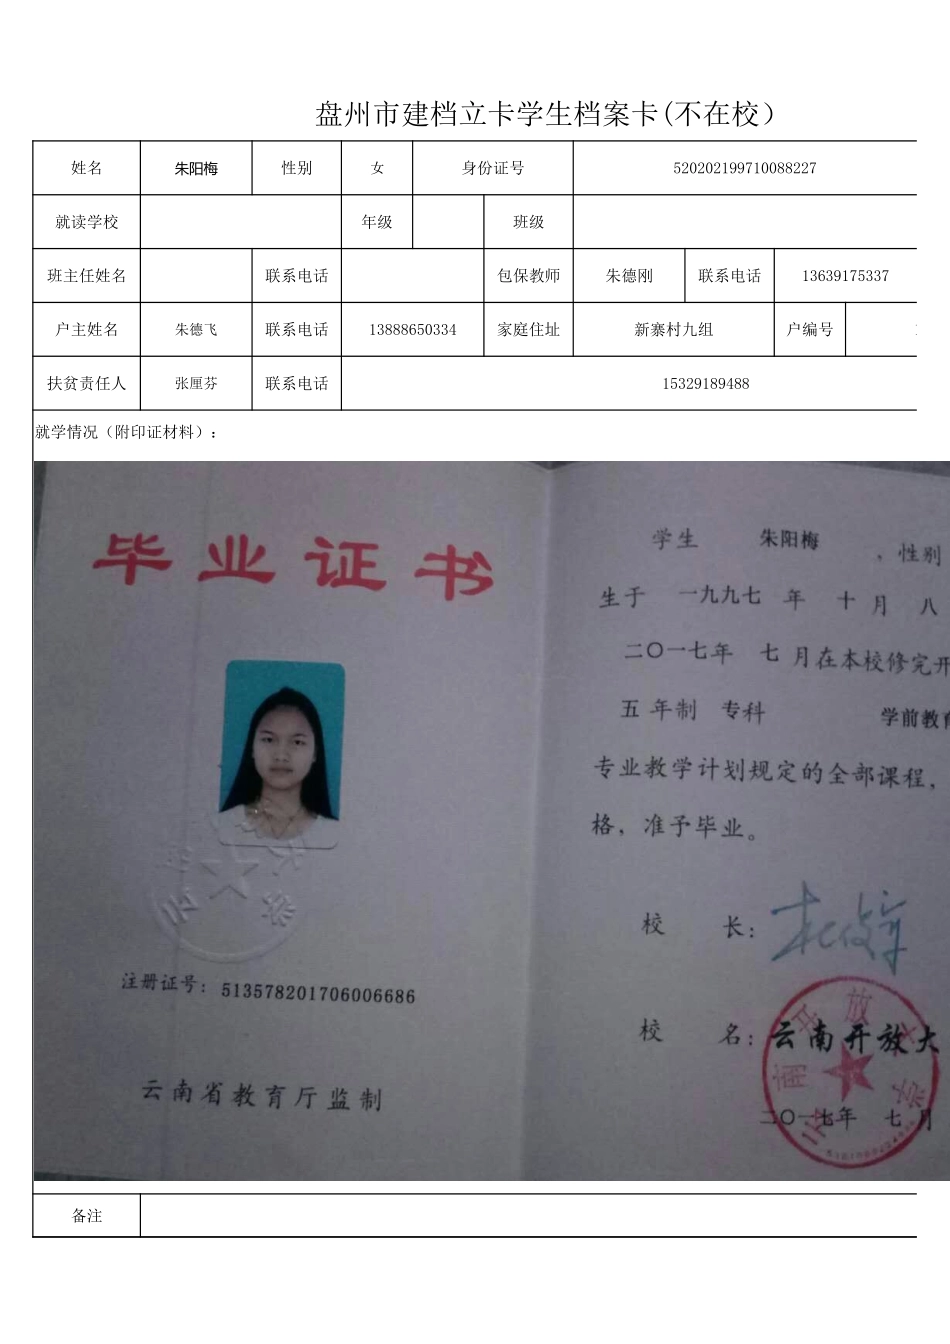 盘州市建档立卡学生档案卡(不在校）
姓名 朱阳梅 性别 女 身份证号 520202199710088227
就读学校 年级 班级
班主任姓名 联系电话 包保教师 朱德刚 联系电话 13639175337
户主姓名 朱德飞 联系电话 13888650334 家庭住址 新寨村九组 户编号
扶贫责任人 张厘芬 联系电话 15329189488
就学情况（附印证材料）：
毕业证书
注册证号：513578201706006686
云南省教育厅监制
学生 朱阳梅 ，性别
生于 一九九七 年 十 月 八
二〇一七年 七 月在本校修完
五 年制 专科 学前教育
专业教学计划规定的全部课程，
格，准予毕业。
校 长：
校 名：云南开放大
二〇一七年 七 月
备注